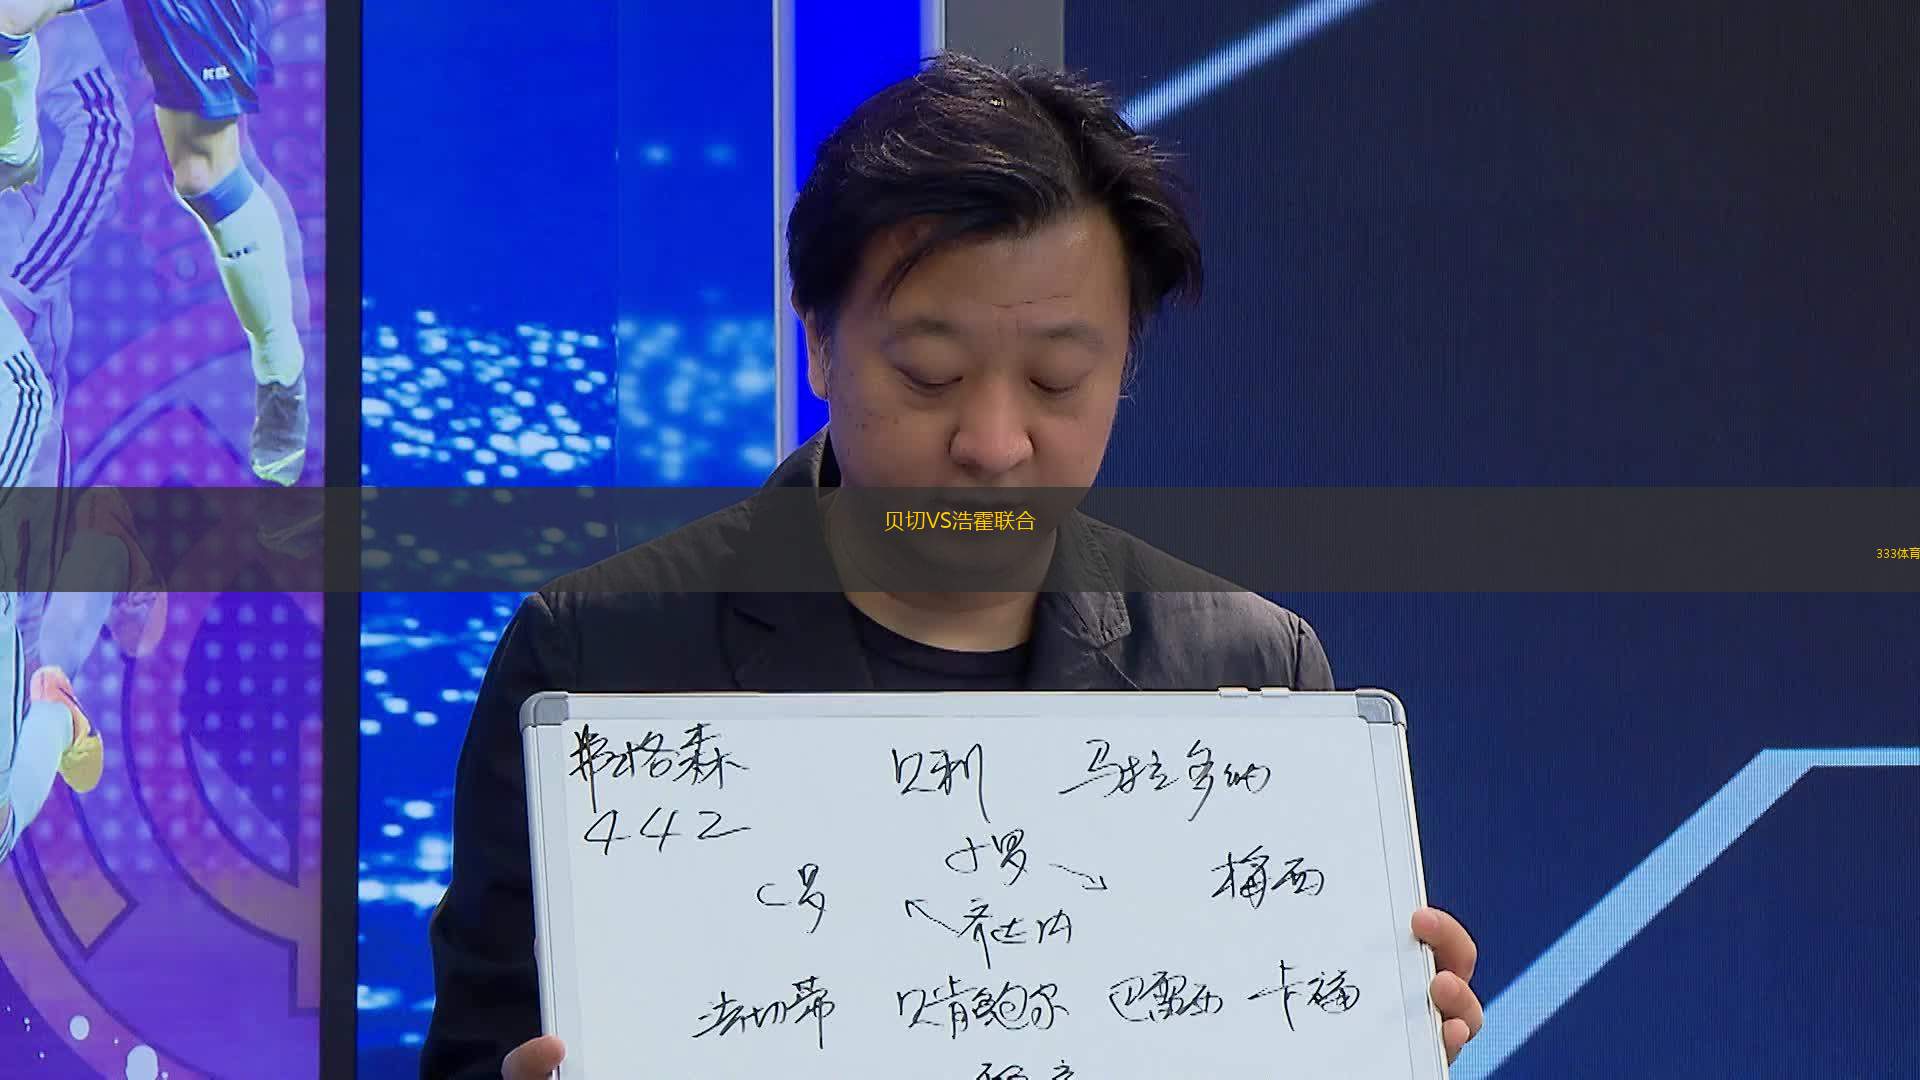 贝切VS浩霍联合
333体育
弗格森 贝利 马拉多纳
442
小罗
C罗 梅西
齐达内
法切蒂 贝肯鲍尔 巴雷西 卡福